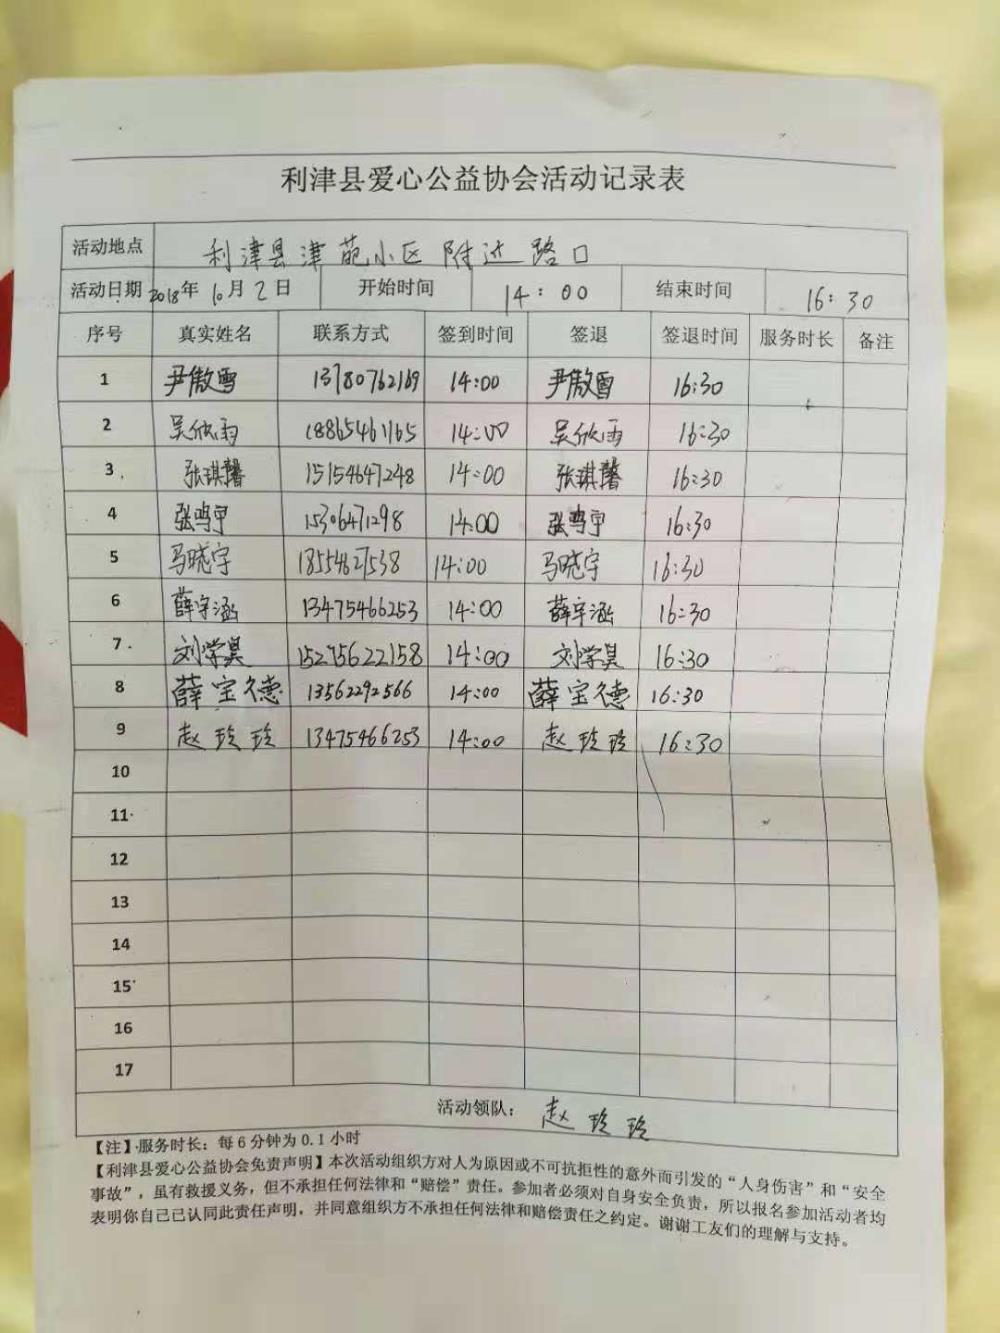 利津县爱心公益协会活动记录表
活动地点 利津县津苑小区附近路口
活动日期 2018年10月2日 开始时间 14:00 结束时间 16:30
序号 真实姓名 联系方式 签到时间 签退 签退时间 服务时长 备注
1 尹傲雪 13780762169 14:00 尹傲雪 16:30
2 吴欣雨 18865461165 14:00 吴欣雨 16:30
3 张琪馨 15154647248 14:00 张琪馨 16:30
4 张鸣宇 15306471298 14:00 张鸣宇 16:30
5 马晓宇 18554627538 14:00 马晓宇 16:30
6 薛宇涵 13475466253 14:00 薛宇涵 16:30
7 刘学昊 15275622158 14:00 刘学昊 16:30
8 薛宝德 13562292566 14:00 薛宝德 16:30
9 赵玲玲 13475466253 14:00 赵玲玲 16:30
10
11
12
13
14
15
16
17
活动领队： 赵玲玲
【注】服务时长：每6分钟为0.1小时
【利津县爱心公益协会免责声明】本次活动组织方对人为原因或不可抗拒性的意外而引发的“人身伤害”和“安全
事故”，虽有救援义务，但不承担任何法律和“赔偿”责任。参加者必须对自身安全负责，所以报名参加活动者均
表明你自己已认同此责任声明，并同意组织方不承担任何法律和赔偿责任之约定。谢谢工友们的理解与支持。